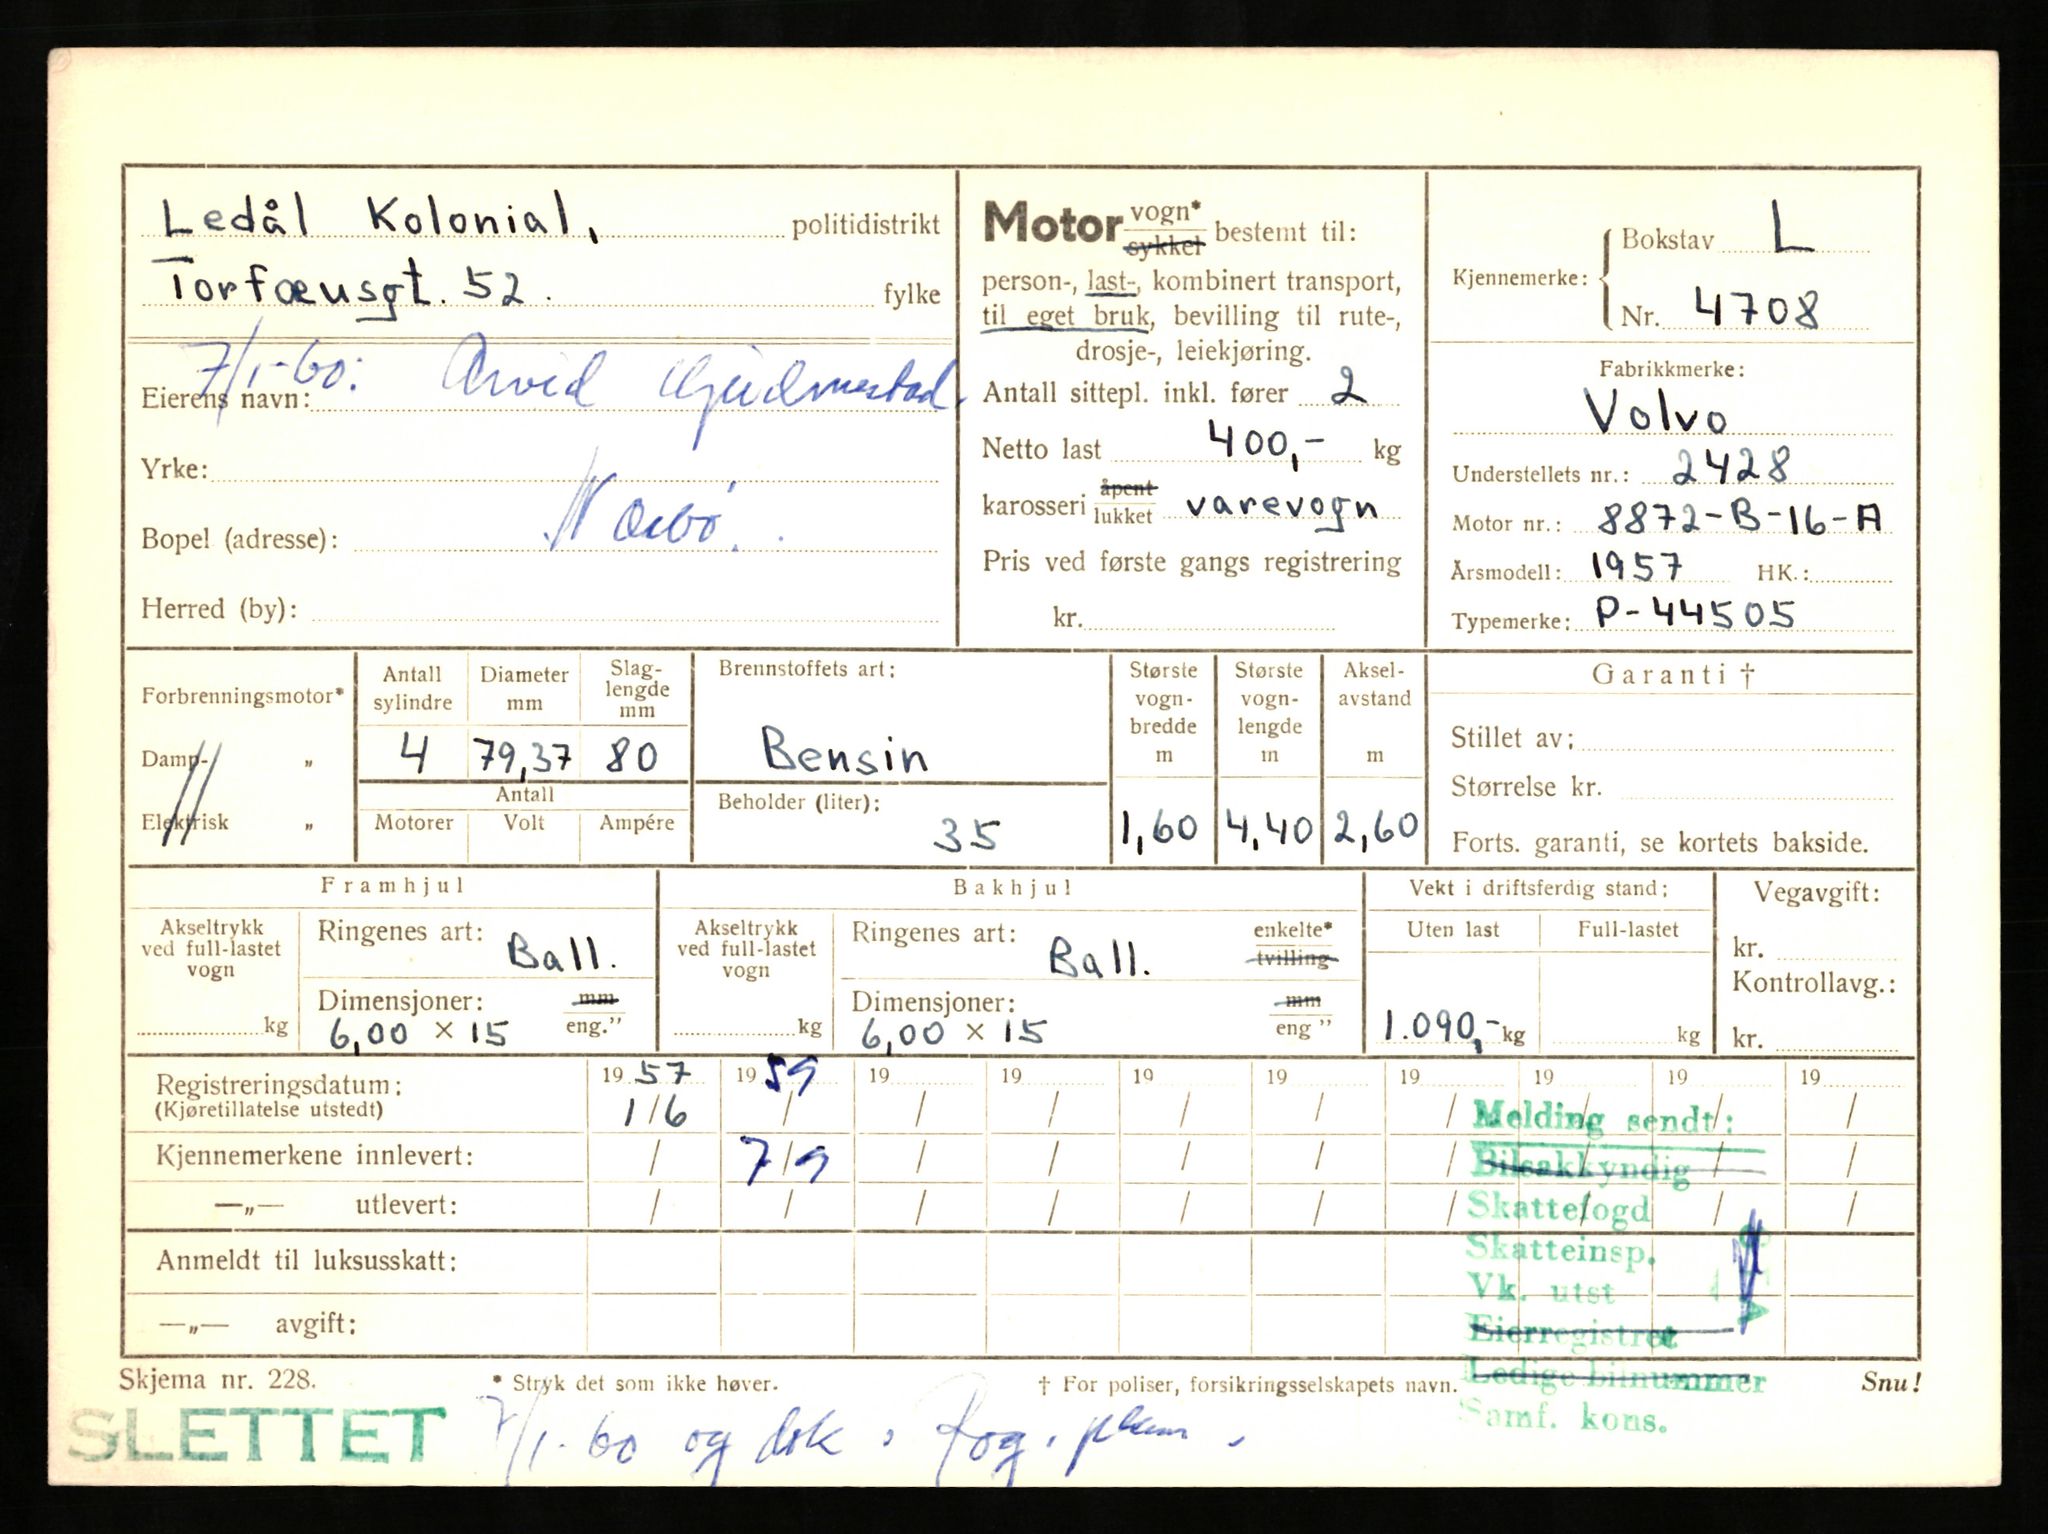 Ledål Kolonial, politidistrikt
Torfæusgt. 52. fylke
7/1-60: Arvid
Eierens navn:
Yrke:
Nærbø.
Bopel (adresse):
Herred (by):
Motor vogn* sykkel bestemt til:
person-, last-, kombinert transport,
til eget bruk, bevilling til rute-,
drosje-, leiekjøring.
Antall sittepl. inkl. fører 2
Netto last 400,- kg
karosseri åpent lukket varevogn
Pris ved første gangs registrering
kr.
Kjennemerke: Bokstav L
Nr. 4708
Fabrikkmerke:
Volvo
Understellets nr.: 2428
Motor nr.: 8872-B-16-A
Årsmodell: 1957 HK.:
Typemerke: P-44505
Forbrenningsmotor*
Damp- „
Elektrisk „
Antall sylindre Diameter mm Slag-lengde mm
4 79,37 80
Antall
Motorer Volt Ampére
Brennstoffets art:
Bensin
Beholder (liter):
35
Største vogn-bredde m Største vogn-lengde m Aksel-avstand m
1,60 4,40 2,60
Garanti †
Stillet av:
Størrelse kr.
Forts. garanti, se kortets bakside.
Framhjul
Akseltrykk ved full-lastet vogn
kg
Ringenes art: Ball.
Dimensjoner: mm
6,00 × 15 eng."
Bakhjul
Akseltrykk ved full-lastet vogn
kg
Ringenes art: Ball. enkelte* tvilling
Dimensjoner: mm
6,00 × 15 eng "
Vekt i driftsferdig stand:
Uten last Full-lastet
1.090,- kg kg
Vegavgift:
kr.
Kontrollavg.:
kr.
Registreringsdatum: 19 57 19 59 19 19 19 19 19 19 19 19
(Kjøretillatelse utstedt) 1/6 / / / / / / / / /
Kjennemerkene innlevert: / 7/9 / / / / / / / /
—„— utlevert: / / / / / / / / / /
Anmeldt til luksusskatt:
—„— avgift:
Melding sendt:
Bilsakkyndig
Skattefogd
Skatteinsp.
Vk. utst
Eierregistret
Ledige bilnummer
Samf. kons.
Skjema nr. 228. * Stryk det som ikke høver. † For poliser, forsikringsselskapets navn. Snu!
SLETTET
7/1-60 og